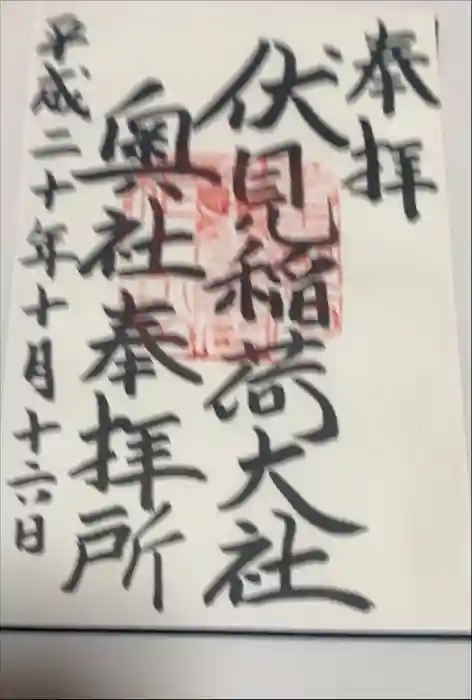 奉拝
伏見稲荷大社
奥社奉拝所
平成二十年十月十六日